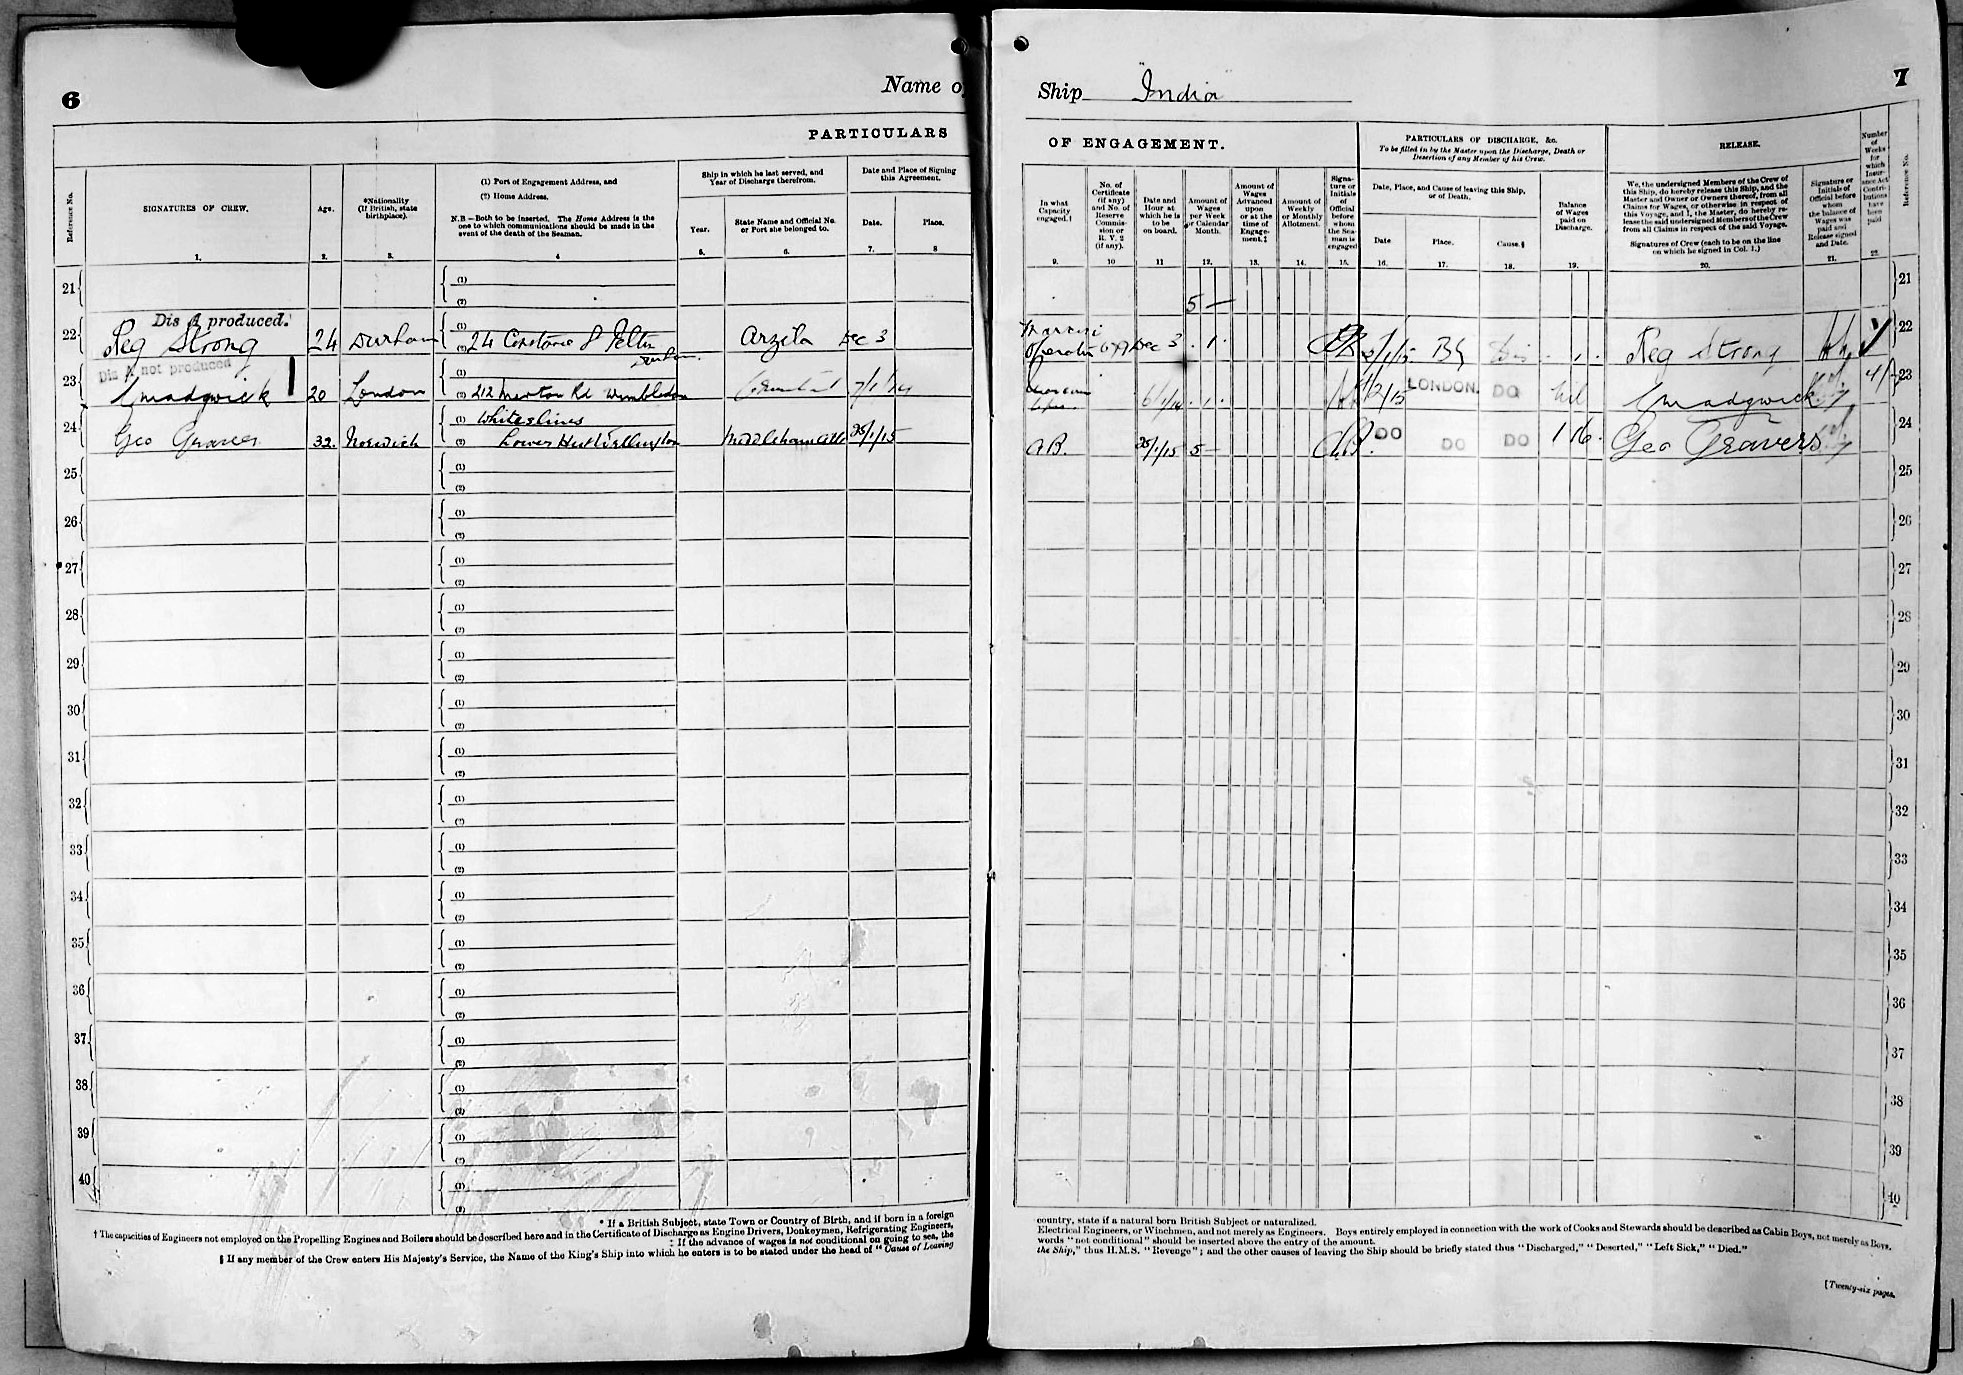 6
Name of
PARTICULARS
Reference No.
SIGNATURES OF CREW.
Age.
*Nationality
(If British, state
birthplace).
(1) Port of Engagement Address, and
(2) Home Address.
N.B—Both to be inserted. The Home Address is the
one to which communications should be made in the
event of the death of the Seaman.
Ship in which he last served, and
Year of Discharge therefrom.
Year.
State Name and Official No.
or Port she belonged to.
Date and Place of Signing
this Agreement.
Date.
Place.
1. 2. 3. 4 5. 6. 7. 8
21 (1)
(2)
Dis A produced.
22 Reg Strong 24 Durham (1)
(2) 24 Arzila Dec 3
Dis A not produced
23 Madgwick 20 London (1)
(2) 212 Merton Rd Wimbledon
24 Geo Graves 32. Norwich (1)
(2) Lower 25/1/15
25 (1)
(2)
26 (1)
(2)
27 (1)
(2)
28 (1)
(2)
29 (1)
(2)
30 (1)
(2)
31 (1)
(2)
32 (1)
(2)
33 (1)
(2)
34 (1)
(2)
35 (1)
(2)
36 (1)
(2)
37 (1)
(2)
38 (1)
(2)
39 (1)
(2)
40 (1)
(2)
* If a British Subject, state Town or Country of Birth, and if born in a foreign
† The capacities of Engineers not employed on the Propelling Engines and Boilers should be described here and in the Certificate of Discharge as Engine Drivers, Donkeymen, Refrigerating Engineers,
‡ If the advance of wages is not conditional on going to sea, the
§ If any member of the Crew enters His Majesty's Service, the Name of the King's Ship into which he enters is to be stated under the head of "Cause of Leaving
Ship "India"
7
OF ENGAGEMENT.
PARTICULARS OF DISCHARGE, &c.
To be filled in by the Master upon the Discharge, Death or
Desertion of any Member of his Crew.
RELEASE.
In what
Capacity
engaged.†
No. of
Certificate
(if any)
and No. of
Reserve
Commis-
sion or
R. V. 2
(if any).
Date and
Hour at
which he is
to be
on board.
Amount of
Wages
per Week
or Calendar
Month.
Amount of
Wages
Advanced
upon
or at the
time of
Engage-
ment.‡
Amount of
Weekly
or Monthly
Allotment.
Signa-
ture or
Initials
of
Official
before
whom
the Sea-
man is
engaged
Date, Place, and Cause of leaving this Ship,
or of Death.
Date
Place.
Cause.§
Balance
of Wages
paid on
Discharge.
We, the undersigned Members of the Crew of
this Ship, do hereby release this Ship, and the
Master and Owner or Owners thereof, from all
Claims for Wages, or otherwise in respect of
this Voyage, and I, the Master, do hereby re-
lease the said undersigned Members of the Crew
from all Claims in respect of the said Voyage.
Signatures of Crew (each to be on the line
on which he signed in Col. 1.)
Signature or
Initials of
Official before
whom
the balance of
Wages was
paid and
Release signed
and Date.
Number
of
Weeks
for
which
Insur-
ance Act
Contri-
butions
have
been
paid
Reference No.
9. 10 11 12. 13. 14. 15. 16. 17. 18. 19. 20. 21. 22.
21
5 —
Marconi
Operator Dec 3 1 Dis 1 Reg Strong 22
LONDON. DO Nil Madgwick 23
A.B. 25/1/15 5 — DO DO DO Geo Gravers 24
25
26
27
28
29
30
31
32
33
34
35
36
37
38
39
40
country, state if a natural born British Subject or naturalized.
Electrical Engineers, or Winchmen, and not merely as Engineers. Boys entirely employed in connection with the work of Cooks and Stewards should be described as Cabin Boys, not merely as Boys.
words "not conditional" should be inserted above the entry of the amount.
the Ship," thus H.M.S. "Revenge"; and the other causes of leaving the Ship should be briefly stated thus "Discharged," "Deserted," "Left Sick," "Died."
[Twenty-six pages.